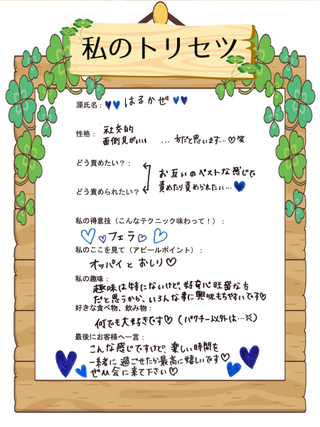 私のトリセツ
源氏名：💙💙はるかぜ💙💙
性格：社交的
面倒見がいい …方だと思います…♡笑
どう責めたい？：
お互いのベストな感じで
責めたり責められたい…💙
どう責められたい？：
私の得意技（こんなテクニック味わって！）：
♡♡フェラ♡♡
私のここを見て（アピールポイント）：
オッパイとおしり♡
私の趣味：
趣味は特にないけど、好奇心旺盛な方
だと思うから、いろんな事に興味もちやすいです♡
好きな食べ物、飲み物：
何でも大好きです♡（パクチー以外は…×）
最後にお客様へ一言：
こんな感じですけど、楽しい時間を
一緒に過ごせたら最高に嬉しいです♡
ぜひ会に来て下さい♡